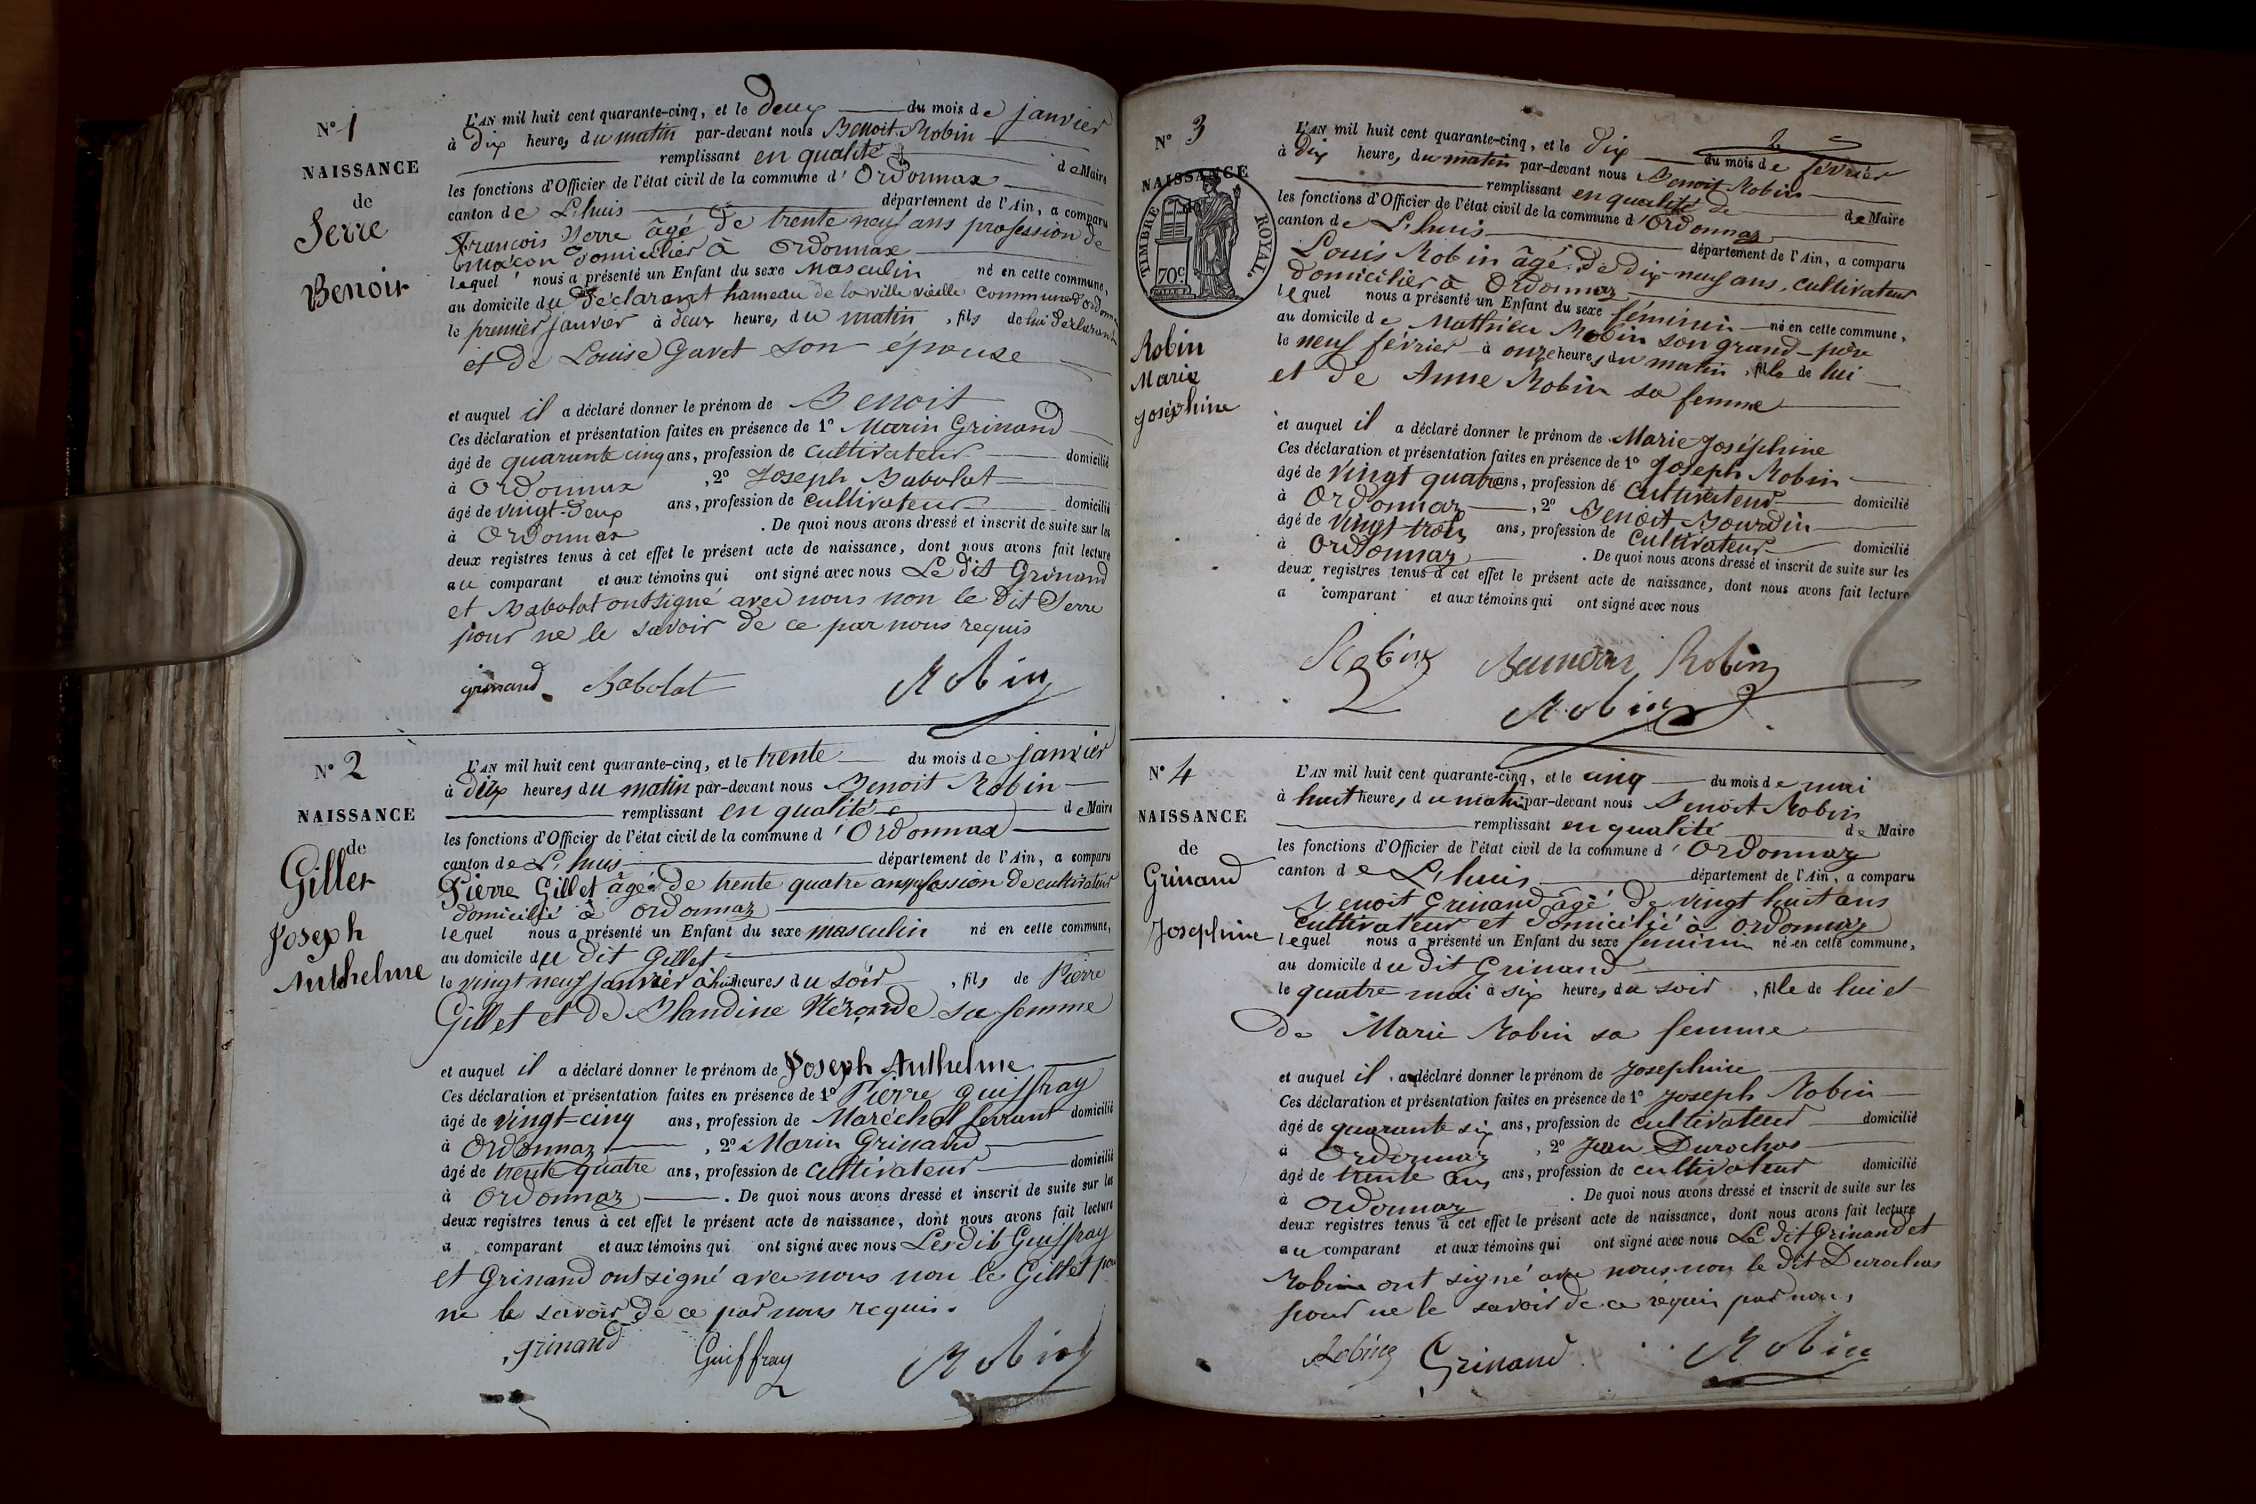 N° 1
NAISSANCE
de
Serre
Benoit
L'AN mil huit cent quarante-cinq, et le deux du mois de janvier
à dix heures du matin par-devant nous Benoit Robin
remplissant en qualité de Maire
les fonctions d'Officier de l'état civil de la commune d'Ordonnax
canton de L'huis département de l'Ain, a comparu
François Serre âgé de trente neuf ans profession de
maçon domicilier à Ordonnax
lequel nous a présenté un Enfant du sexe masculin né en cette commune,
au domicile du déclarant hameau de la ville vieille commune d'Ordonnax
le premier janvier à deux heures du matin, fils de lui déclarant
et de Louise Gavet son épouse
et auquel il a déclaré donner le prénom de Benoit
Ces déclaration et présentation faites en présence de 1° Marin Grinand
âgé de quarante cinq ans, profession de cultivateur domicilié
à Ordonnax, 2° Joseph Babolat
âgé de vingt-deux ans, profession de cultivateur domicilié
à Ordonnax. De quoi nous avons dressé et inscrit de suite sur les
deux registres tenus à cet effet le présent acte de naissance, dont nous avons fait lecture
au comparant et aux témoins qui ont signé avec nous Le dit Grinand
et Babolat ont signé avec nous non le dit Serre
pour ne le savoir de ce par nous requis
grinand Babolat Robin
N° 2
NAISSANCE
de
Gillet
Joseph
Anthelme
L'AN mil huit cent quarante-cinq, et le trente du mois de janvier
à dix heures du matin par-devant nous Benoit Robin
remplissant en qualité de Maire
les fonctions d'Officier de l'état civil de la commune d'Ordonnax
canton de L'huis département de l'Ain, a comparu
Pierre Gillet âgé de trente quatre ans profession de cultivateur
domicilié à Ordonnaz
lequel nous a présenté un Enfant du sexe masculin né en cette commune,
au domicile du dit Gillet
le vingt neuf janvier à huit heures du soir, fils de Pierre
Gillet et de Blandine Néronde sa femme
et auquel il a déclaré donner le prénom de Joseph Anthelme
Ces déclaration et présentation faites en présence de 1° Pierre Guiffray
âgé de vingt-cinq ans, profession de Maréchal ferrant domicilié
à Ordonnaz, 2° Marin Grinand
âgé de trente quatre ans, profession de cultivateur domicilié
à Ordonnaz. De quoi nous avons dressé et inscrit de suite sur les
deux registres tenus à cet effet le présent acte de naissance, dont nous avons fait lecture
a comparant et aux témoins qui ont signé avec nous Les dit Guiffray
et Grinand ont signé avec nous non le Gillet pour
ne le savoir de ce par nous requis.
grinand Guiffray Robin
2
N° 3
NAISSANCE
TIMBRE ROYAL.
70c
Robin
Marie
Joséphine
L'AN mil huit cent quarante-cinq, et le dix du mois de février
à dix heures du matin par-devant nous Benoit Robin
remplissant en qualité de de Maire
les fonctions d'Officier de l'état civil de la commune d'Ordonnaz
canton de L'huis département de l'Ain, a comparu
Louis Robin âgé de dix-neuf ans, cultivateur
domicilier à Ordonnaz
lequel nous a présenté un Enfant du sexe féminin né en cette commune,
au domicile de Mathieu Robin son grand-père
le neuf février à onze heures du matin, fille de lui
et de Anne Robin sa femme
et auquel il a déclaré donner le prénom de Marie Joséphine
Ces déclaration et présentation faites en présence de 1° Joseph Robin
âgé de vingt quatre ans, profession de cultivateur domicilié
à Ordonnaz, 2° Benoit Bourdin
âgé de vingt trois ans, profession de cultivateur domicilié
à Ordonnaz. De quoi nous avons dressé et inscrit de suite sur les
deux registres tenus à cet effet le présent acte de naissance, dont nous avons fait lecture
a comparant et aux témoins qui ont signé avec nous
Robin Robin
Robin
N° 4
NAISSANCE
de
Grinand
Josephine
L'AN mil huit cent quarante-cinq, et le cinq du mois de mai
à huit heures du matin par-devant nous Benoit Robin
remplissant en qualité de Maire
les fonctions d'Officier de l'état civil de la commune d'Ordonnaz
canton de L'huis département de l'Ain, a comparu
Benoit Grinand âgé de vingt huit ans
cultivateur et domicilié à Ordonnaz
lequel nous a présenté un Enfant du sexe feminin né en cette commune,
au domicile du dit Grinand
le quatre mai à six heures du soir, fille de lui et
de Marie Robin sa femme
et auquel il a déclaré donner le prénom de Josephine
Ces déclaration et présentation faites en présence de 1° Joseph Robin
âgé de quarante six ans, profession de cultivateur domicilié
à Ordonnaz, 2° Jean Durochas
âgé de trente ans ans, profession de cultivateur domicilié
à Ordonnaz. De quoi nous avons dressé et inscrit de suite sur les
deux registres tenus à cet effet le présent acte de naissance, dont nous avons fait lecture
au comparant et aux témoins qui ont signé avec nous Le dit Grinand et
Robin ont signé avec nous non le dit Durochas
pour ne le savoir de ce requis par nous,
Robin Grinand Robin